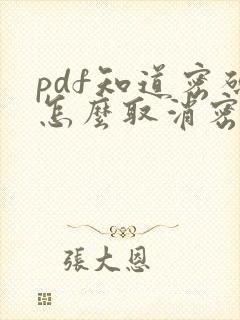 pdf知道密碼
怎麼取消密
張大恩